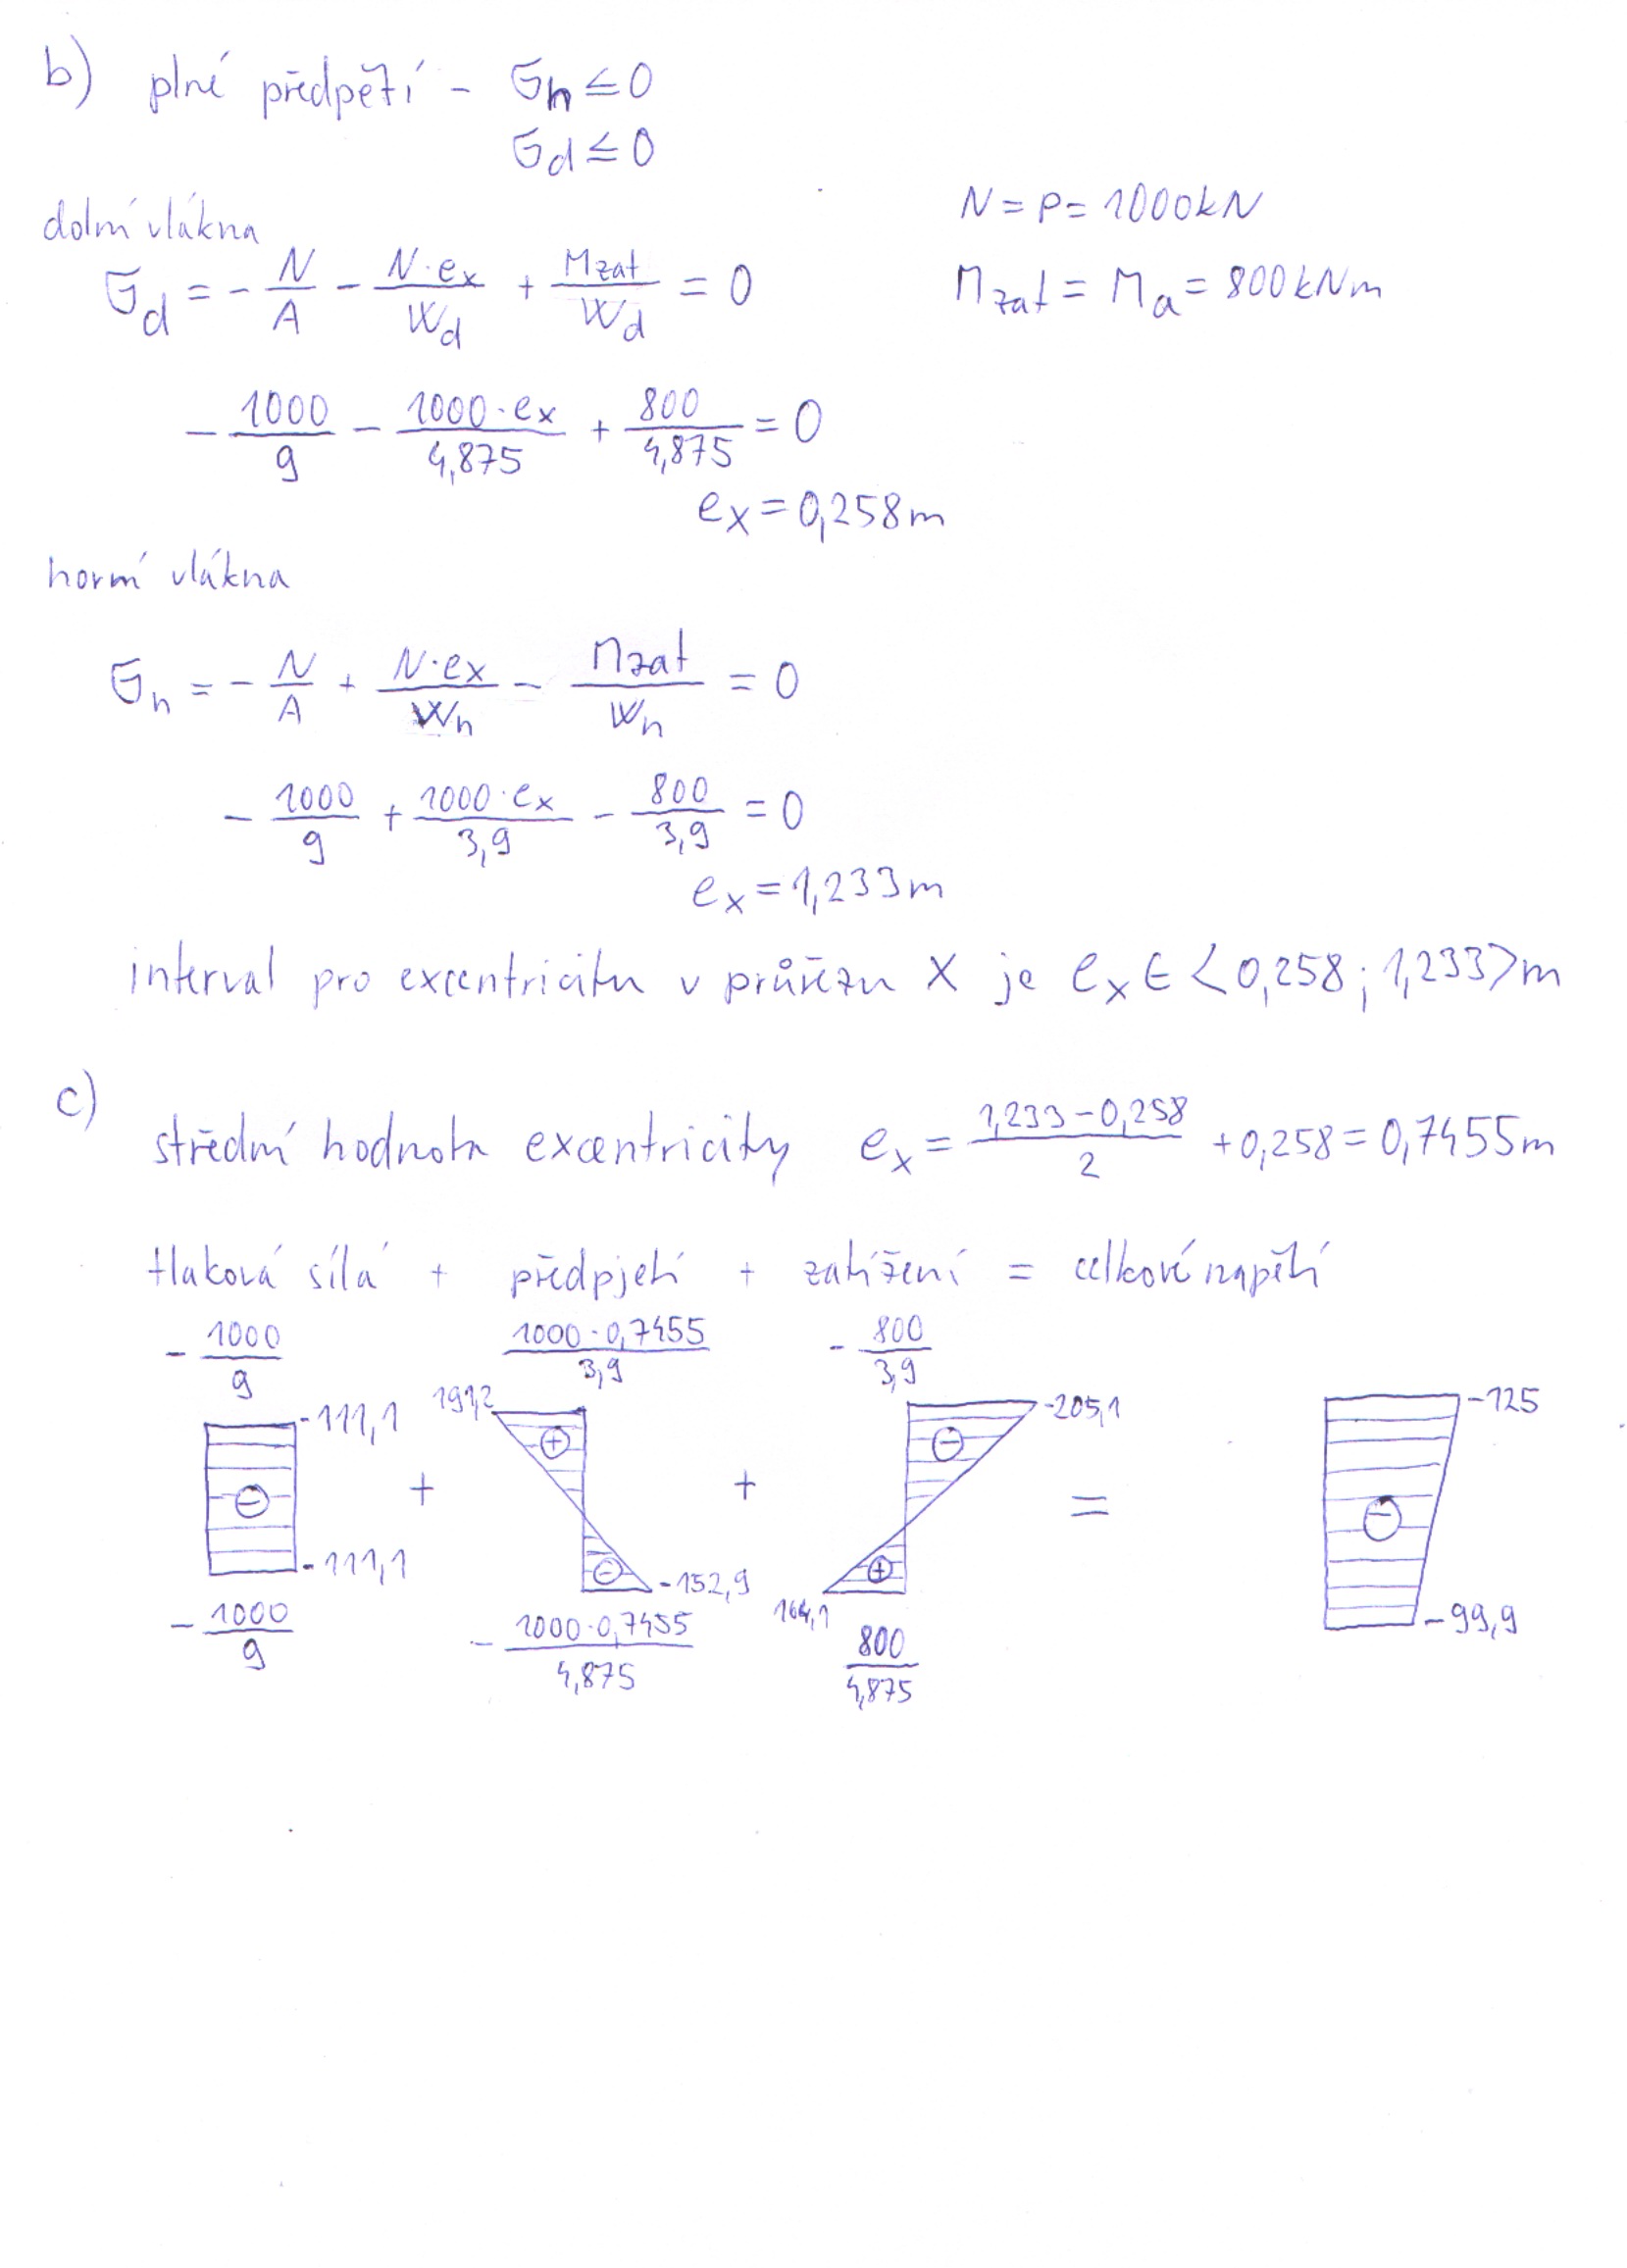 b) plné předpětí - σh ≤ 0
σd ≤ 0
dolní vlákna
N = P = 1000kN
σd = - N/A - N·ex/Wd + Mzat/Wd = 0
Mzat = Ma = 800kNm
- 1000/9 - 1000·ex/4,875 + 800/4,875 = 0
ex = 0,258m
horní vlákna
σh = - N/A + N·ex/Wh - Mzat/Wh = 0
- 1000/9 + 1000·ex/3,9 - 800/3,9 = 0
ex = 1,233m
interval pro excentricitu v průřezu X je ex ∈ <0,258; 1,233>m
c)
střední hodnota excentricity ex = 1,233-0,258/2 + 0,258 = 0,7455m
tlaková síla + předpjetí + zatížení = celkové napětí
- 1000/9 1000·0,7455/3,9 - 800/3,9
-111,1 191,2 -205,1 -125
⊖ + ⊕ + ⊖ = ⊖
-111,1 ⊖ -152,9 164,1 ⊕ -99,9
- 1000/9 - 1000·0,7455/4,875 800/4,875